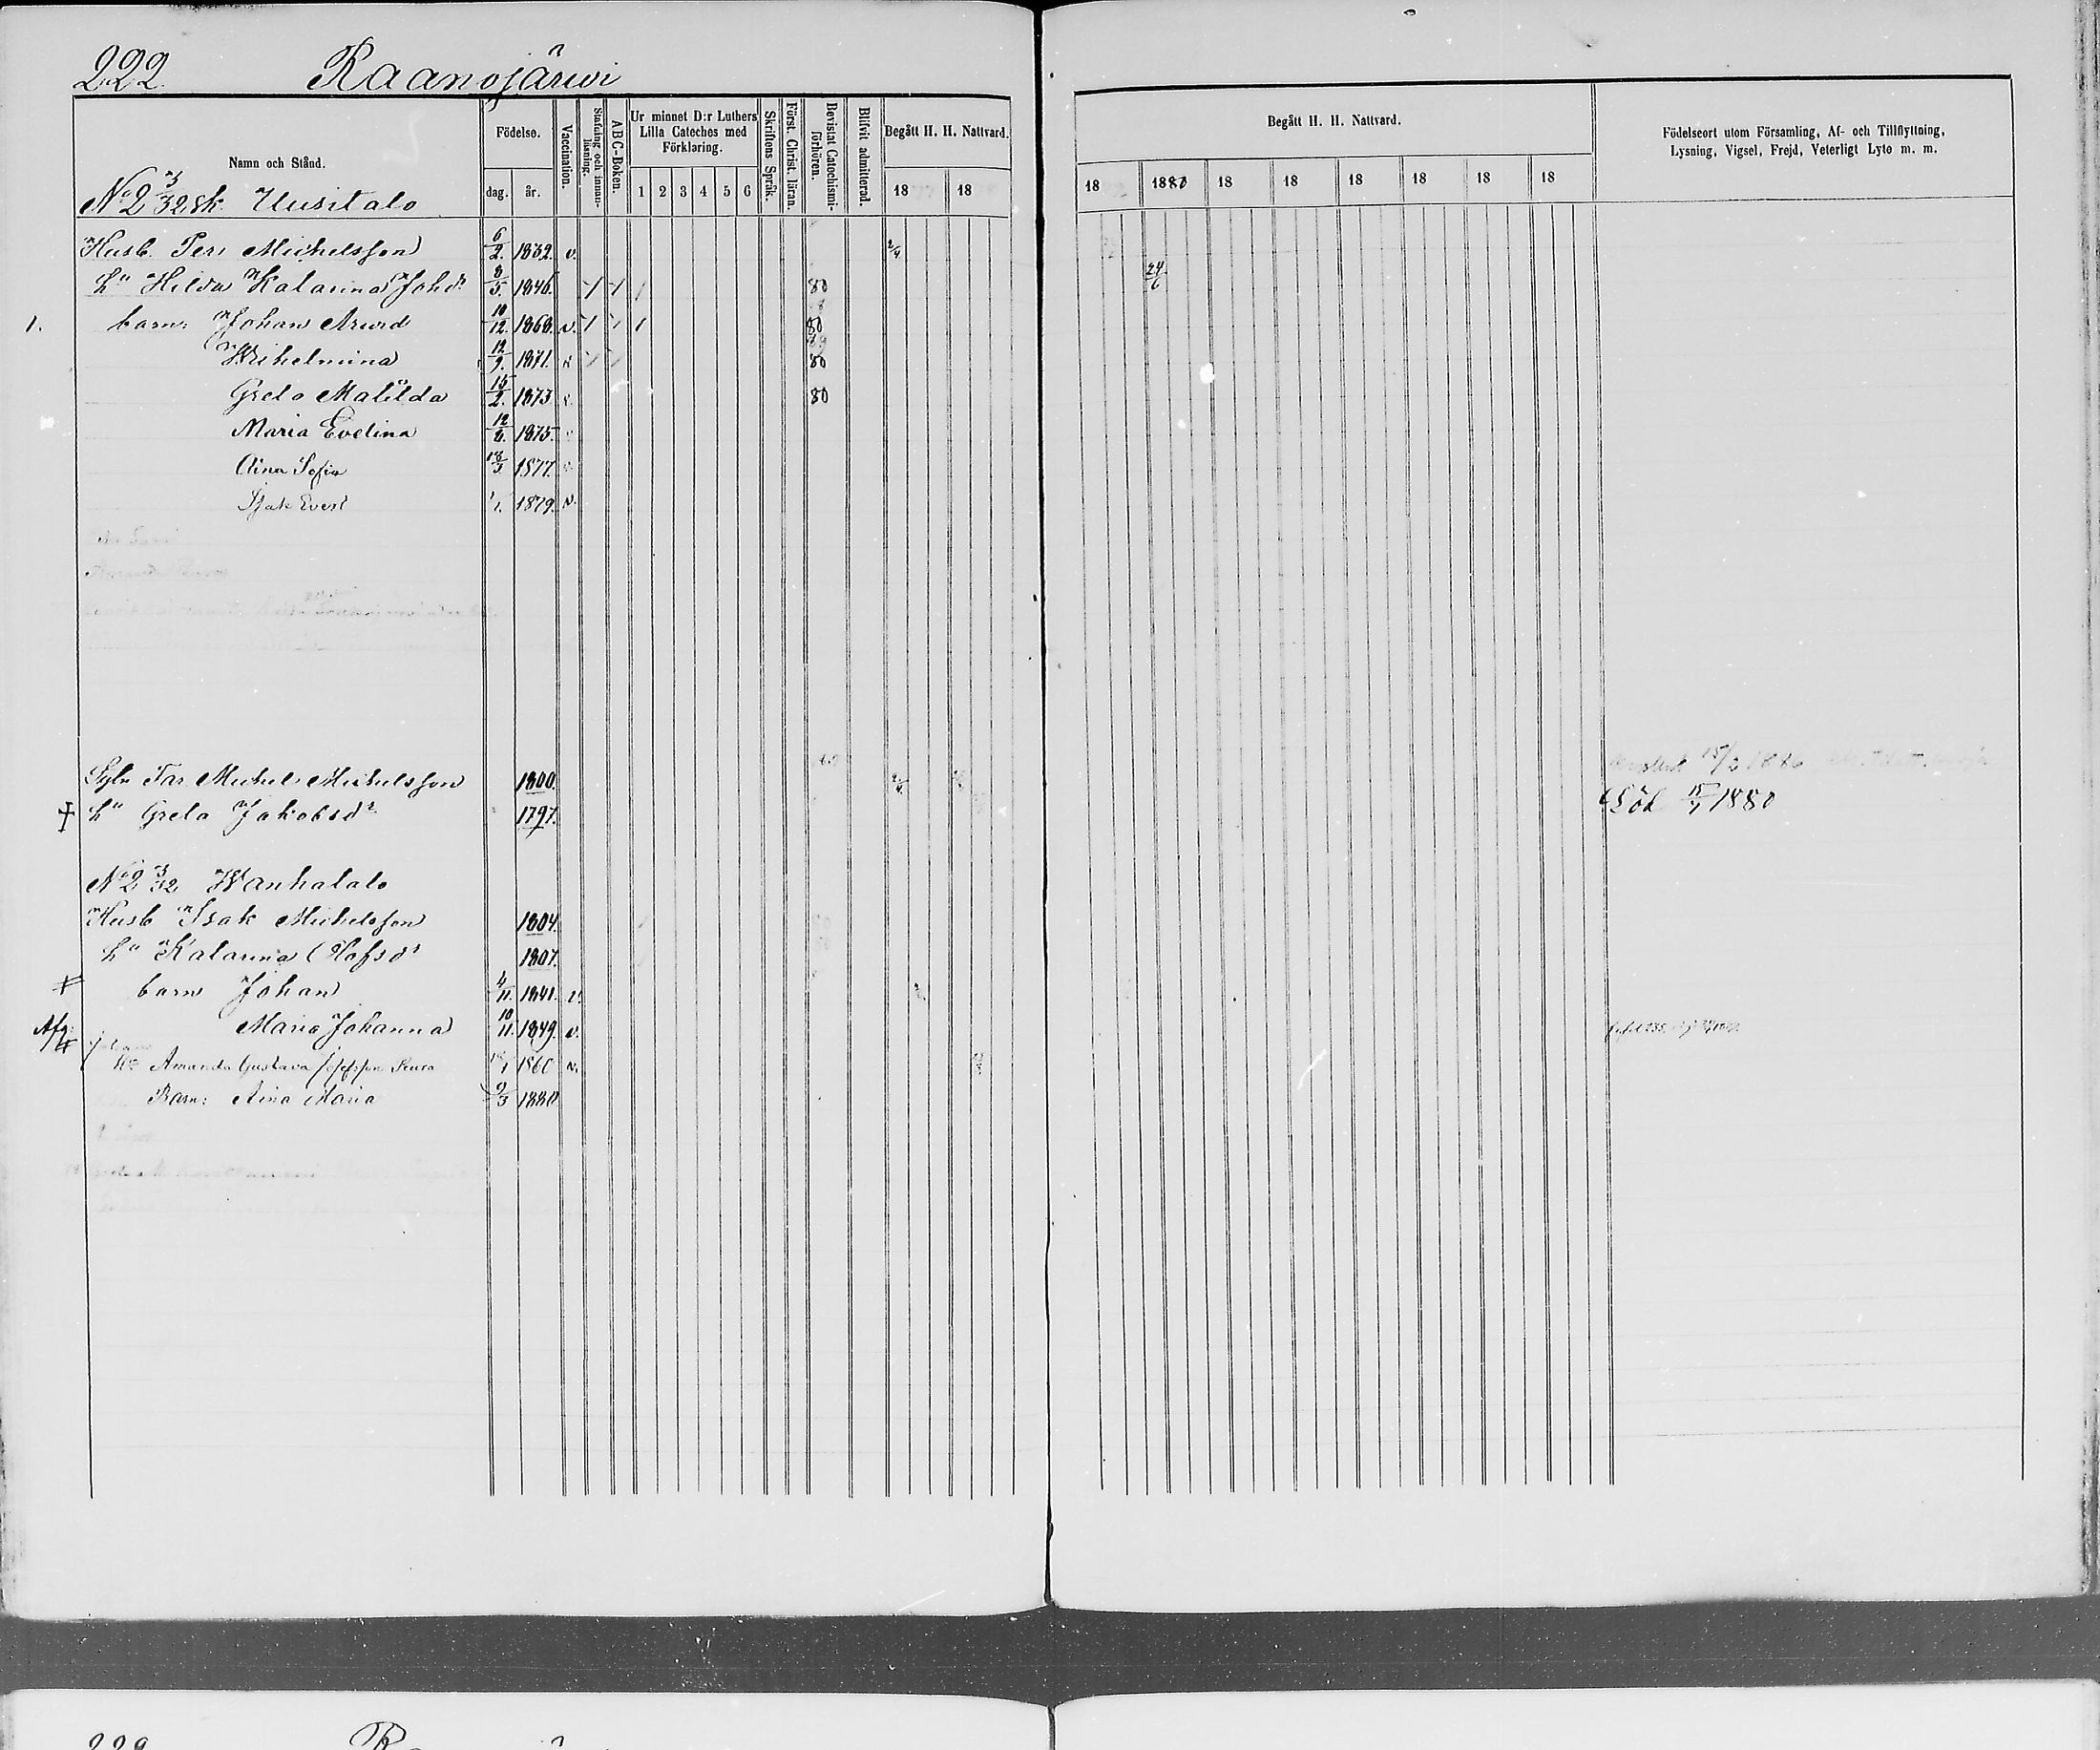 222. Raanojärwi
Namn och Stånd.
Födelse.
dag. år.
Vaccination.
Stafning och innanläsning.
A B C-Boken.
Ur minnet D:r Luthers Lilla Cateches med Förklaring.
1 2 3 4 5 6
Skriftens Språk.
Först. Christ. läran.
Bevistat Catechismiförhören.
Blifvit admitterad.
Begått H. H. Nattvard.
18 18
Begått H. H. Nattvard.
18 1880 18 18 18 18 18 18
Födelseort utom Församling, Af- och Tillflyttning,
Lysning, Vigsel, Frejd, Veterligt Lyte m. m.
No 2 3/32 sk. Uusitalo
Husb. Pers Michelsson 6/2. 1832. v. 2/4
h" Hilda Katarina Johdr 8/5. 1846. 80 24/6
1. barn: Johan Arwid 10/12. 1868. v. 1 80
Wilhelmina 12/9. 1871. v 80
Greta Matilda 15/2. 1873 80
Maria Evelina 12/8. 1875.
Aina Sofia 18/3 1877.
Isak Evert 1/1. 1879. v.
Far Michel Michelsson 1800.
h" Greta Jakobsdr 1797. Död 15/7 1880
No 2 3/32 Wanhatalo
Husb Isak Michelsson 1804.
h" Katarina Olofsdr 1807.
barn Johan 4/11. 1841. v.
Afg: Maria Johanna 10/11. 1849. v.
Johans
Hu Amanda Gustava Josefsson 1860 v.
Barn: Aina Maria 9/3 1880
222 Raanojärwi